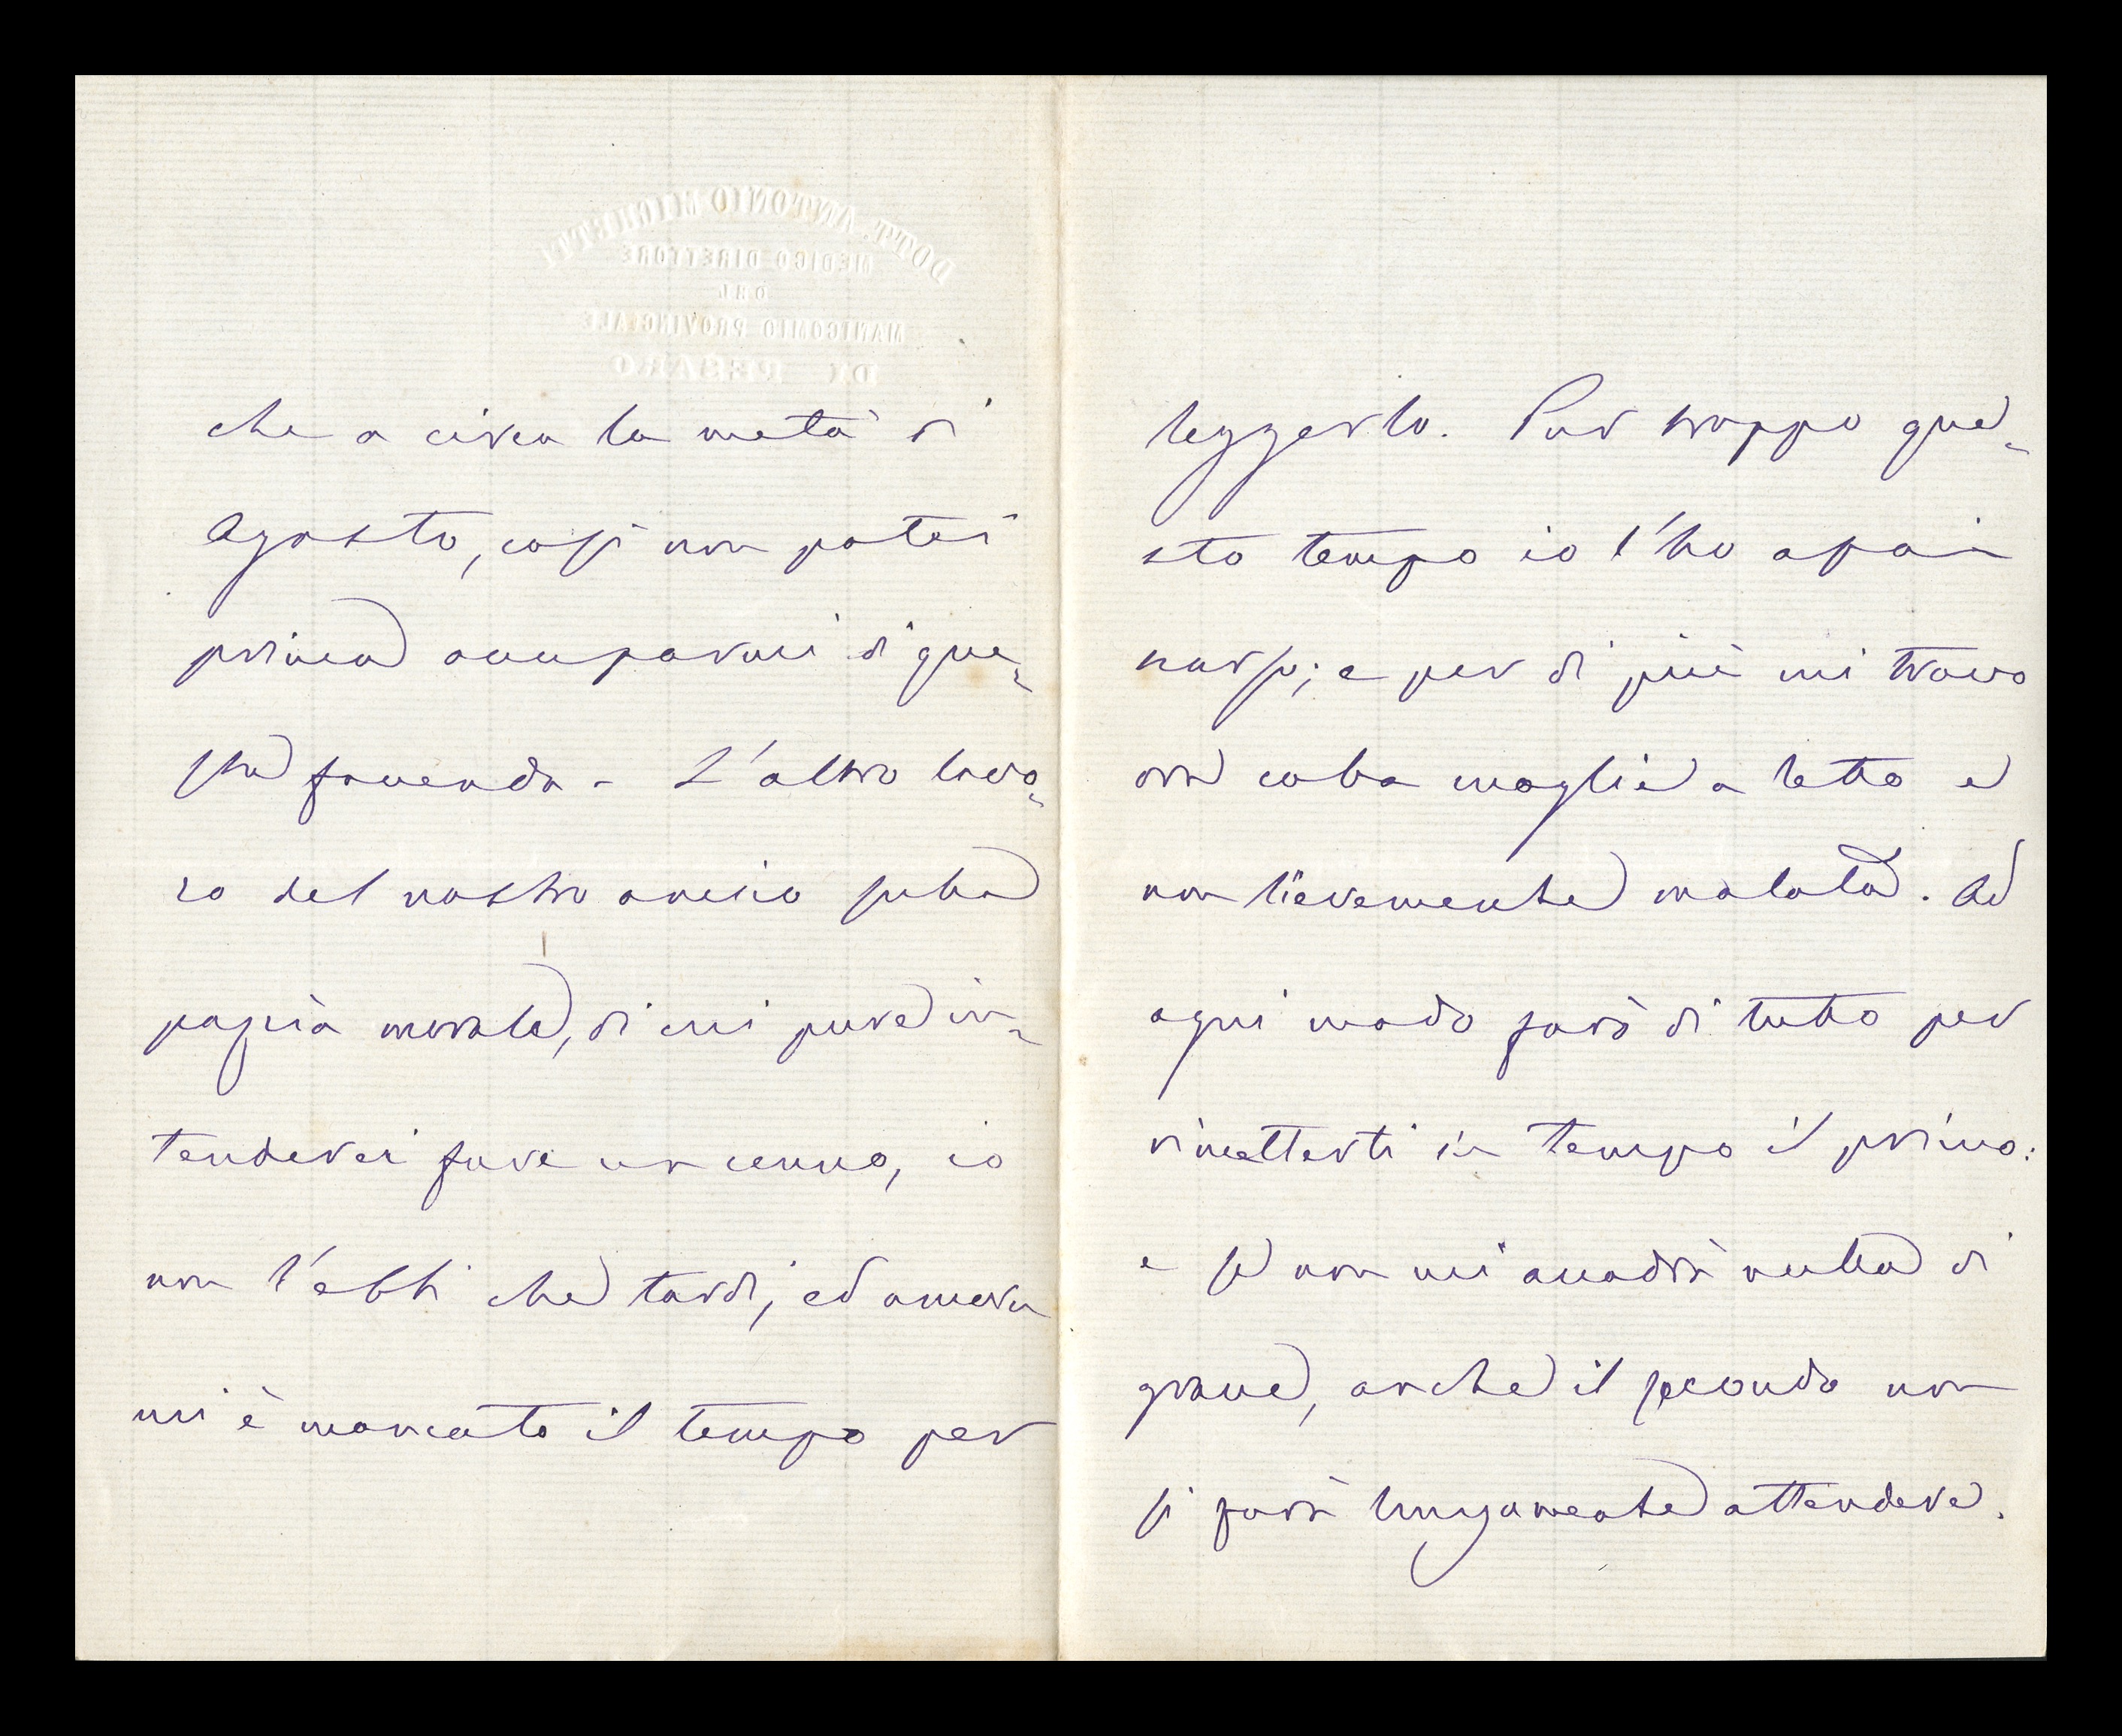 DOTT. ANTONIO MICHETTI
MEDICO DIRETTORE
DEL
MANICOMIO PROVINCIALE
DI PESARO
che a circa la metà di
Agosto, così non potei
prima occuparmi di que-
sta faccenda - L'altro lavo-
ro del nostro amico sulla
pazzia morale, di cui pure in-
tenderei fare un cenno, io
non l'ebbi che tardi; ed ancora
mi è mancato il tempo per
leggerlo. Pur troppo que-
sto tempo io l'ho assai
scarso; e per di più mi trovo
ora colla moglie a letto e
non lievemente malata. Ad
ogni modo farò di tutto per
rimetterti in tempo il primo:
e se non mi accadrà nulla di
grave, anche il secondo non
si farà lungamente attendere.